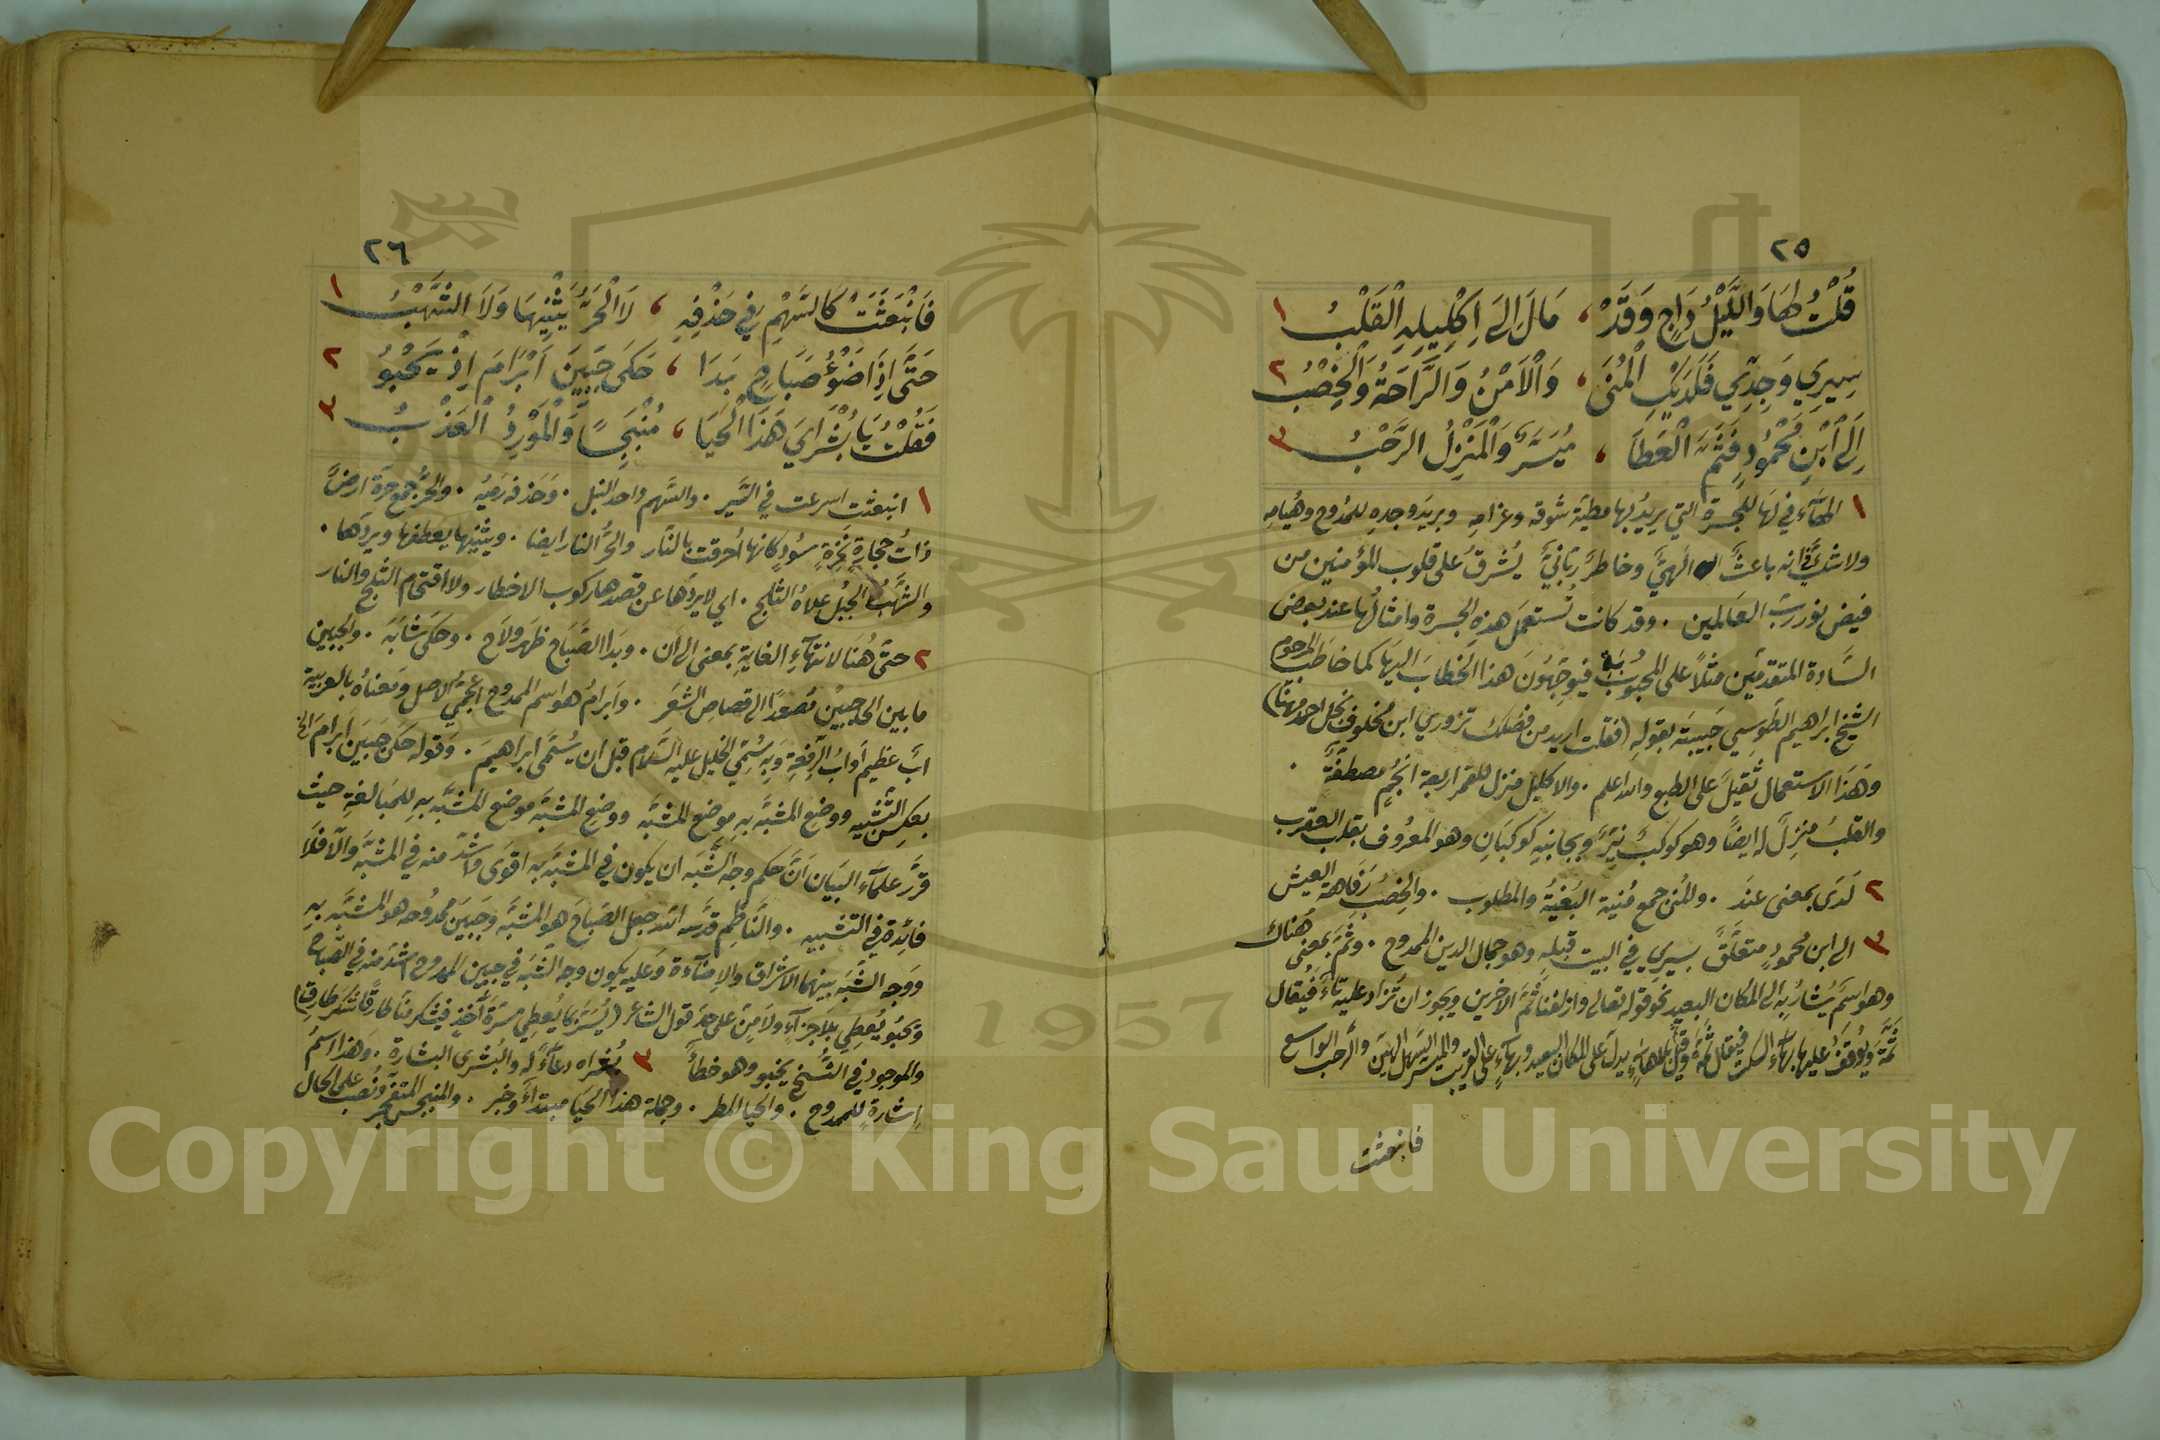 ٢٥
قُلْتُ لهَا وَاللَّيْلُ دَاجٍ وَقَدْ ، مَالَ اِلَى اِكْلِيلِهِ الْقَلْبُ ١
سِيرِي وَجِدِّي فَلَدَيْكِ الْمُنَى ، وَالْاَمْنُ وَالرَّاحَةُ وَالْخِصْبُ ٢
اِلَى ابْنِ مَحْمُودٍ فَثَمَّ الْعَطَا ، مُيَسَّرٌ وَالْمَنْزِلُ الرَّحْبُ ٣
١ الهآء في لها للجسرة التي يريد بها مطيّة شوقه وغرامه ويريد وجده للممدوح وهُيامه
ولا شك في انه باعثٌ الهيٌّ وخاطرٌ ربّانيٌّ يُشرقُ على قلوب المؤمنين من
فيض نور ربّ العَالمين . وقد كانت تُستعمَل هذه الجسرة وامثالُها عند بعض
السَّادة المتقدّمين مثلاً على المحبُوبَة فيوجّهُونَ هذا الخطابَ اليهَا كما خاطبَ المرحوم
الشيخ ابراهيم الطوسي حَبيبتَه بقوله (فقلت اريد من فضلك تزوري ابن مخلوف نجل احمد مهنّا)
وَهَذَا الاستعمال ثقيلٌ على الطبع والله اعلم . والاكليل منزل للقمر اربعة انجُمٍ مصطفّةٍ .
والقلبُ منزلٌ له ايضًا وهو كوكبٌ نيّرٌ وبجانبيه كوكبَانِ وهو المعرُوف بقلب العقرب
٢ لَدَى بمعنى عندَ . والمُنى جمع مُنية البُغيَةُ والمطلوب . والخِصْبُ رَفَاهة العيش
٣ الى ابن محمُودٍ متعلّقٌ بسيري في البيت قبله وهو جمال الدين الممدوح . وثَمَّ بمعنى هُناك
وهو اسمٌ يُشارُ به الى المكان البعيد نحو قوله تعالى وازلفنا ثمَّ الآخرين ويجوز ان تُزاد عليه تاءٌ فيُقال
ثَمَّةَ ويُوقَفُ عليها بهآء السكت فيقال ثَمَّهْ وقيل بلا هآءٍ يدلّ على المكان البعيد وبهآءٍ على القريب والميسّر السهل الهيّن والرحب الواسع
فانبعثت
٢٦
فَانْبَعَثَتْ كَالسَّهْمِ فِي حَذْفِهِ ، لَا الْحَرُّ يَثْنِيهَا وَلَا الشَّهْبُ ١
حَتَّى اِذَا ضَوْءُ صَبَاحٍ بَدَا ، حَكَى جَبِينَ اَبْرَامَ اِذْ يَحْبُو ٢
فَقُلْتُ يَا بُشْرَايَ هَذَا الْحَيَا ، مُنْبَجِسًا وَالْمَوْرِدُ الْعَذْبُ ٣
١ انبعثت اسرعت في السَّير . والسَّهم واحد النبل . وَحَذفه رَميُه . والحَرُّ جمع حَرَّة ارضٌ
ذاتُ حجارةٍ نَخِرَةٍ سُودٍ كانها أُحرقت بالنّار والحَرُّ النار ايضا . ويثنيها يعطفها ويردّها .
والشَّهْبُ الجبَل علاهُ الثلج . اي لا يردّها عن قصدها ركوب الاخطار ولا اقتحام الثلج والنار
٢ حتّى هُنا لانتهآءِ الغاية بمعنى الى ان . وبَدا الصَّبَاح ظهر ولاح . وحكى شابَهَ . والجبين
ما بين الحاجبيْن مُصعدًا الى قصاص الشعَر . وابرامُ هو اسم الممدوح اعجمُّي الاصل ومعناهُ بالعربية
ابٌ عظيم او ابُ الرِفعةِ وَبِهِ سُمّي الخليل عليه السَّلام قبل ان يُسَمَّى ابراهيم . وَقوله حكى جبينَ ابرامَ الخ
بعكس التشبيه ووضع المشبَّه به موضع المشبَّه ووضع المشبّه موضع المشبَّه به للمبَالغةِ حيث
قرَّر علمآءُ البيَان انَّ حكم وجه الشَّبَه ان يكون في المشبَّه به اقوَى واشدّ منه في المشبَّه والّا فلا
فائدة في التشبيه . والنَّاظم قدَّسه الله جعل الصَباحَ هو المشبَّه وجَبينَ ممدُوحه هو المشبَّه به
وَوَجه الشَّبَه بينهما الاشراق والاضآءة وَعليه يكون وجه الشبَه في جبين الممدوح اشدّ منه في الصَّباح
ويَحبُو يُعطِي بلا جزآءٍ ولا مَنٍّ على حدّ قول الشاعر
والموجود في النُّسَخ يخبو وهو خطأٌ ٣ بُشراه دعآءٌ له والبُشرى البشارة . وهذا اسمُ
اشارةٍ للممدوح . والحيا المطر . وجملة هذا الحيا مبتداءٌ وخبر . والمنبجس المتفجّر ونُصب على الحال
1957
Copyright © King Saud University